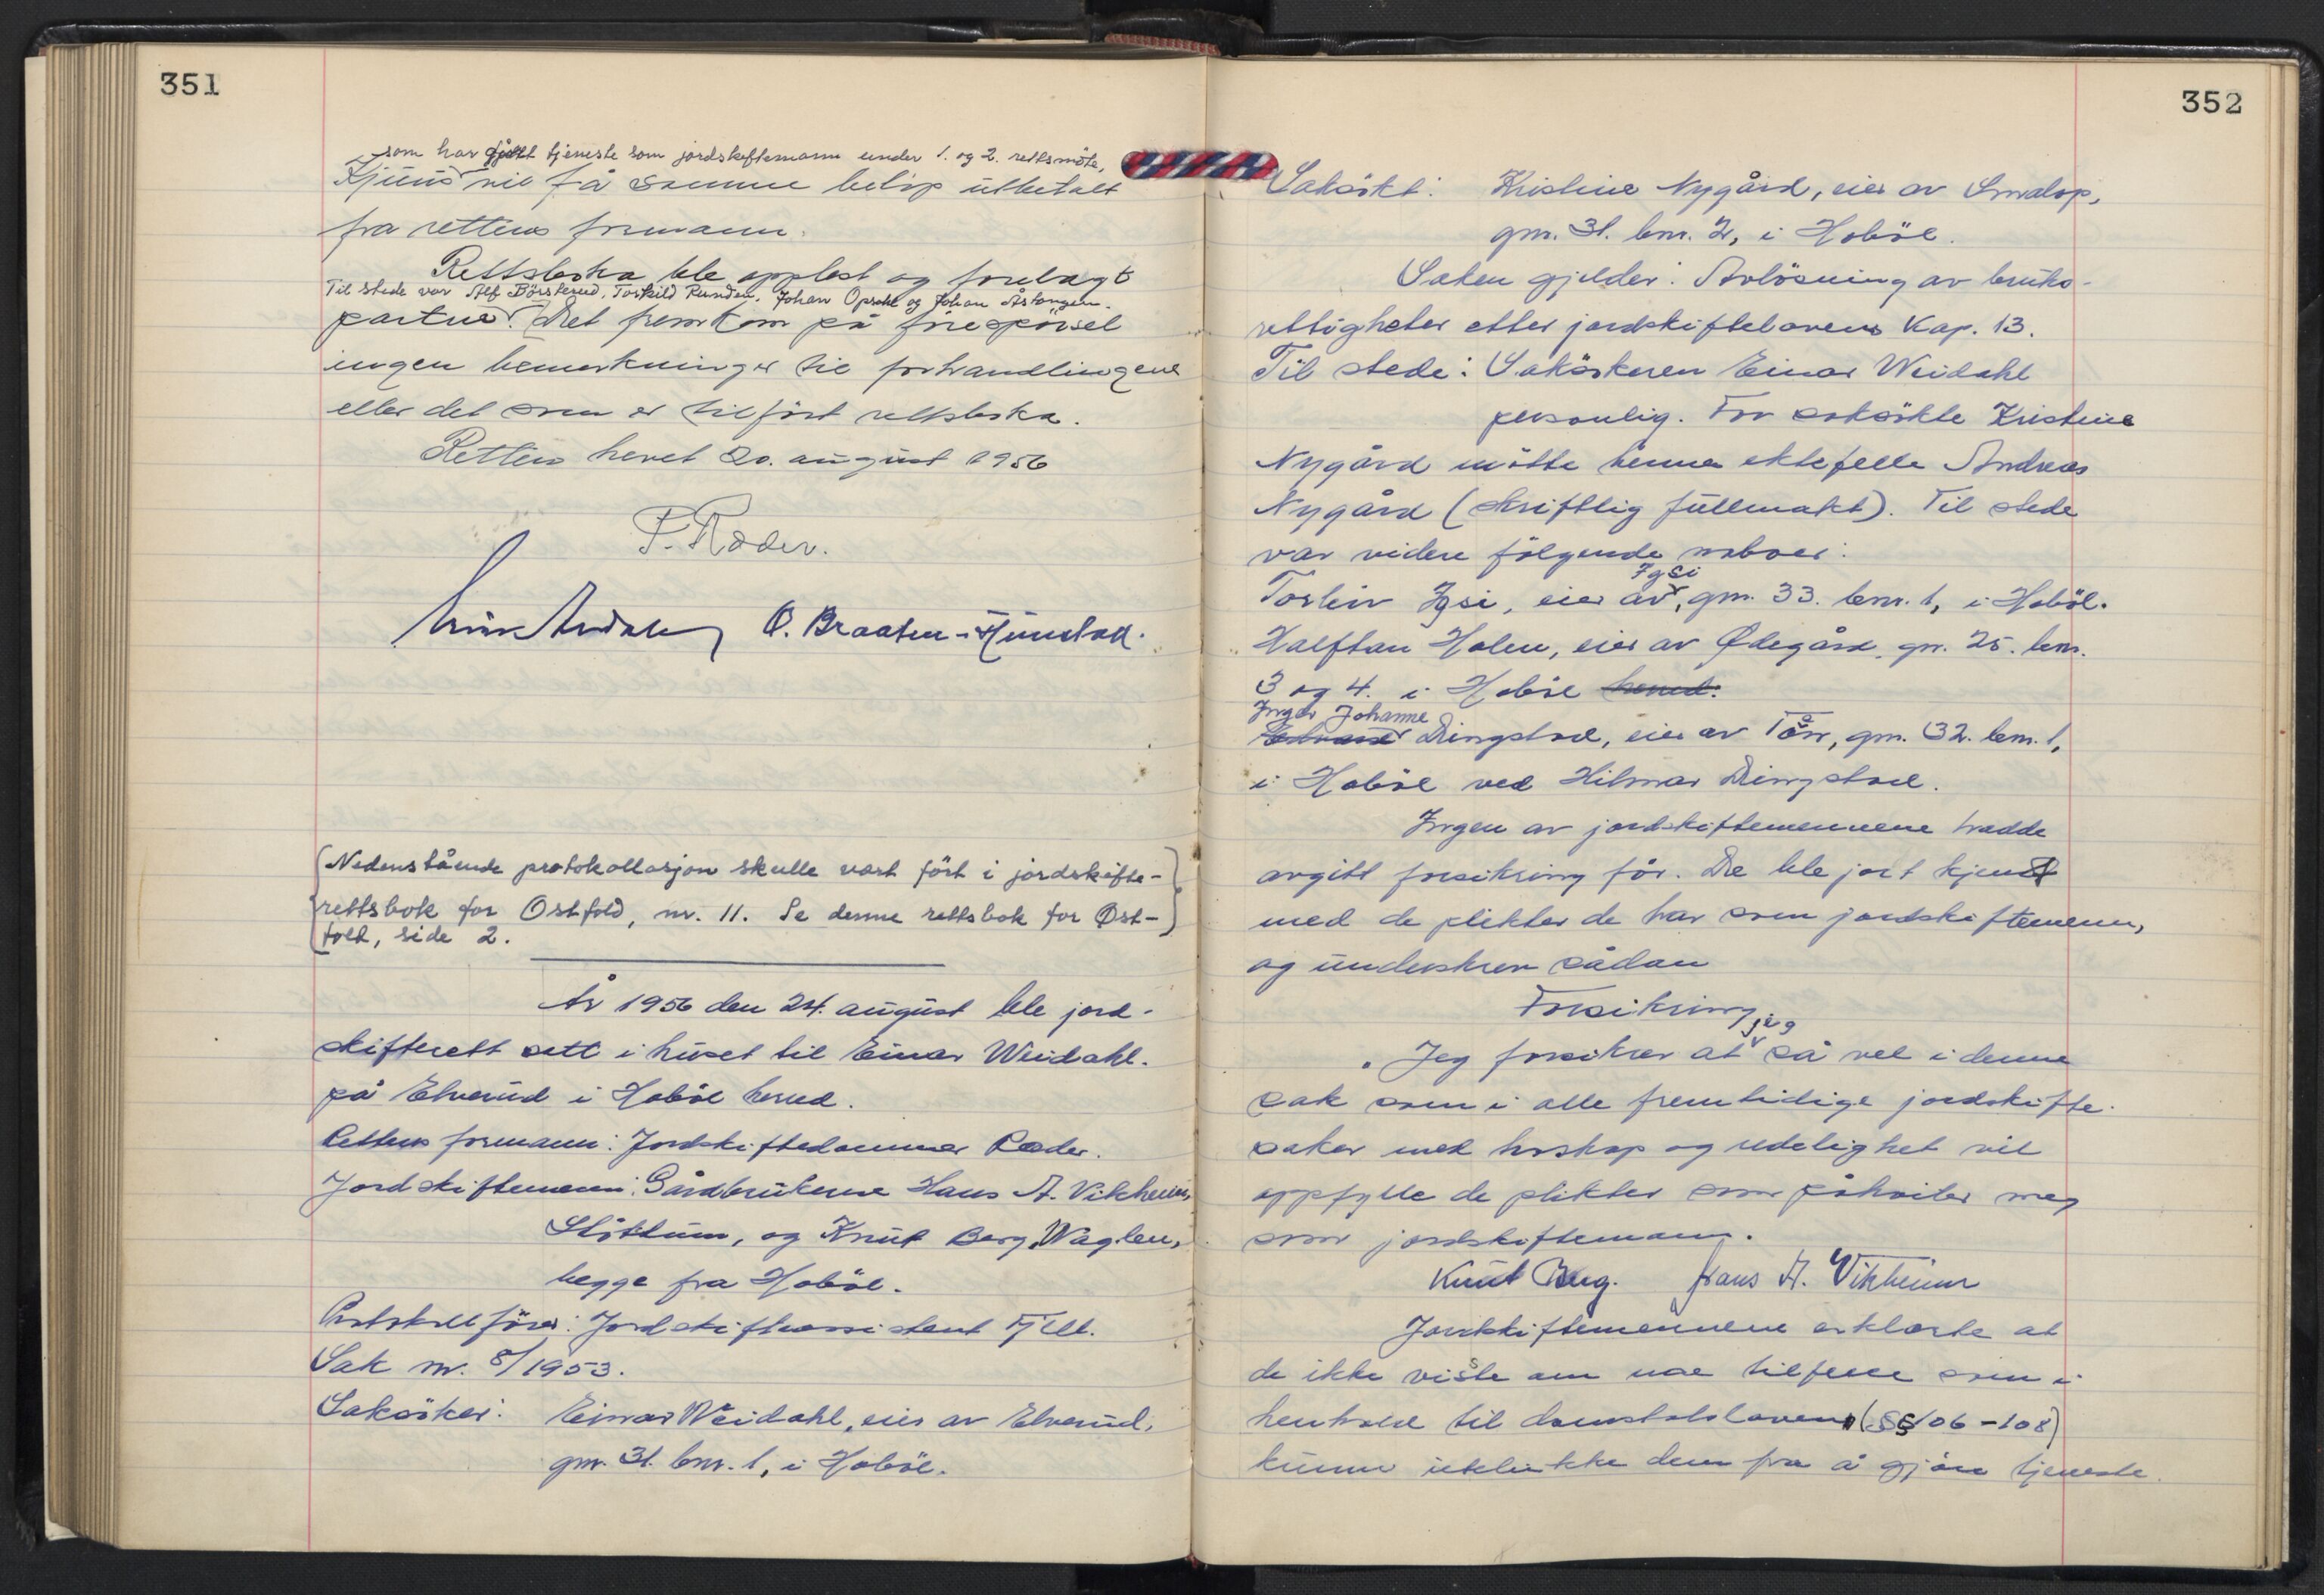 351
som har gjort tjeneste som jordskiftemann under 1. og 2. rettsmöte,
vil få samme belöp utbetalt
fra rettens formann.
Rettsboka ble opplest og forelagt
Til stede var Alf Börsterud, Torkild Runden, Johan Opsahl og Johan Åstangen.
partene. Det fremkom på forespörsel
ingen bemerkninger til forhandlingene
eller det som er tilfört rettsboka.
Retten hevet 20. august 1956
P. Ræder.
O. Braaten-
(Nedenstående protokollasjon skulle vært fört i jordskifte-
rettsbok for Östfold, nr. 11. Se denne rettsbok for Øst-
fold, side 2.)
År 1956 den 24. august ble jord-
skifterett satt i huset til Einar Weidahl.
på Elverud i Hoböl herred.
Rettens formann: Jordskiftedommer Ræder.
Jordskiftemenn: Gårdbrukerne Hans A. Vikheim,
Slöttum, og Knut Berg, Waglen,
begge fra Hoböl.
Protokollförer: Jordskifteassistent Fjell.
Sak nr. 8/1953.
Saksöker: Einar Weidahl, eier av Elverud,
gnr. 31. bnr. 1, i Hoböl.
352
Saksökt: Kristine Nygård, eier av Smalop,
gnr. 31. bnr. 2, i Hoböl.
Saken gjelder: Avlösning av bruks-
rettigheter etter jordskiftelovens Kap. 13.
Til stede: Saksökeren Einar Weidahl
personlig. For saksökte Kristine
Nygård mötte hennes ektefelle Andreas
Nygård (skriftlig fullmakt). Til stede
var videre fölgende naboer:
Torleiv Igsi, eier av Igsi, gnr. 33. bnr. 1, i Hoböl.
Halftan Holen, eier av Ødegård, gnr. 25. bnr.
3 og 4. i Hoböl herred.
Inger Johanne
Ringstad, eier av Tån, gnr. 32. bnr. 1,
i Hoböl ved Hilmar Ringstad.
Ingen av jordskiftemennene hadde
avgitt forsikring för. De ble gjort kjent
med de plikter de har som jordskiftemenn,
og underskrev sådan
Forsikring
"Jeg forsikrer at jeg så vel i denne
sak som i alle fremtidige jordskifte-
saker med troskap og redelighet vil
oppfylle de plikter som påhviler meg
som jordskiftemann.
Knut Berg. Hans A. Vikheim
Jordskiftemennene erklærte at
de ikke visste om noe tilfelle som i
henhold til domstolsloven (§§ 106-108)
kunne utelukke dem fra å gjöre tjeneste.